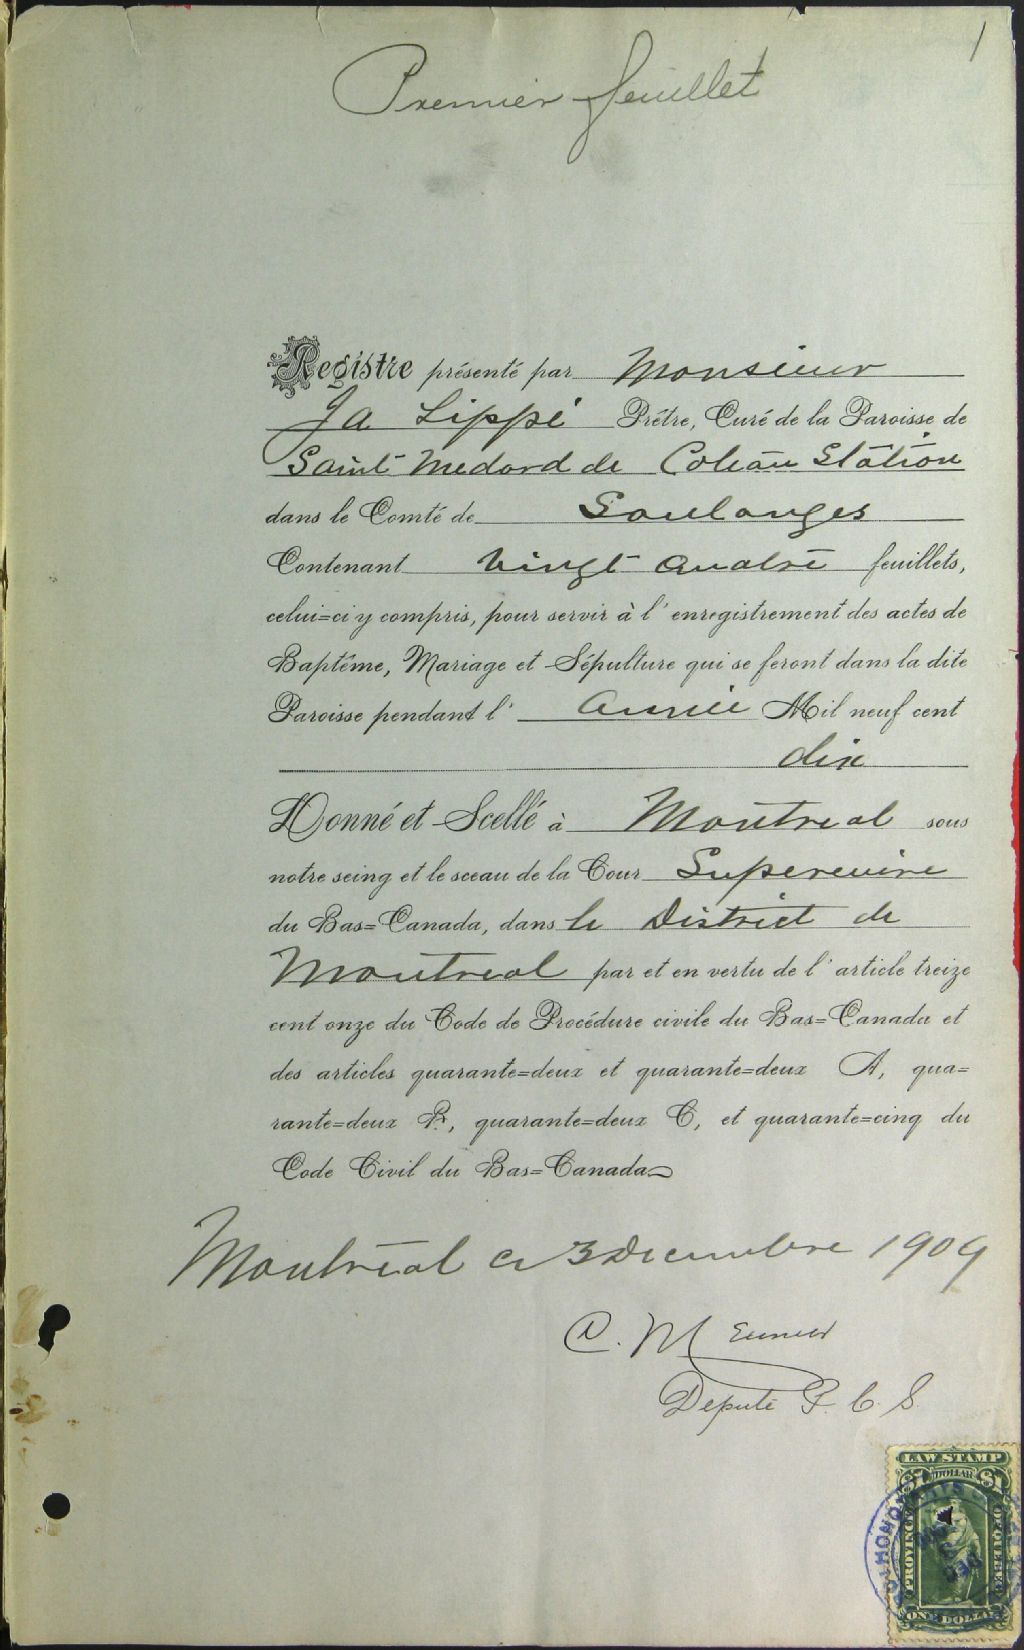 1
Premier feuillet
Registre présenté par Monsieur
Ja Lippé Prêtre, Curé de la Paroisse de
Saint Medard de Coteau Station
dans le Comté de Soulanges
Contenant Vingt Quatre feuillets,
celui=ci y compris, pour servir à l'enregistrement des actes de
Baptême, Mariage et Sépulture qui se feront dans la dite
Paroisse pendant l' Année Mil neuf cent
dix
Donné et Scellé à Montreal sous
notre seing et le sceau de la Cour Superieure
du Bas=Canada, dans le District de
Montreal par et en vertu de l'article treize
cent onze du Code de Procédure civile du Bas=Canada et
des articles quarante=deux et quarante=deux A, qua=
rante=deux B, quarante=deux C, et quarante=cinq du
Code Civil du Bas=Canada
Montréal ce 3 Decembre 1909
Deputé P. C. S.
LAW STAMP
$1 DOLLAR $1
PROVINCE OF QUEBEC
DEC
ONE DOLLAR